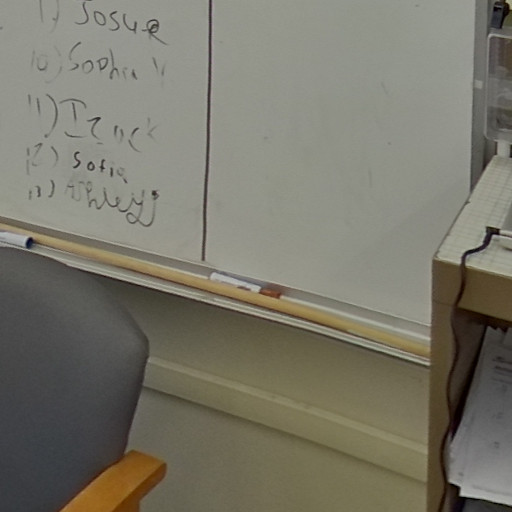 1) Josue
10) Sophia Y
11) Izack
12) Sofia
13) Ashley J